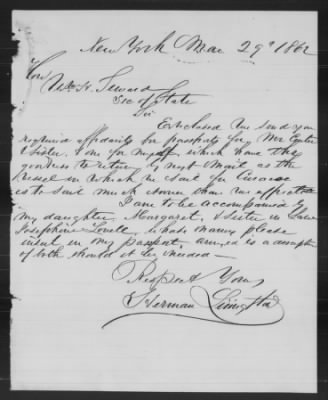 New York Mar 29th 1862
Hon
Wm H. Seward
Sec of State
Sir
Enclosed we send you
required affidavits for passports for Mr
& Sister, & one for myself which have the
goodness to return by next mail as the
vessel in which we sail for
is to sail much sooner than we expected
I am to be accompanied by
my daughter Margaret, & Sister in Law
Josephine Lowell whose names please
insert in my passport, annexed is a description
of both should it be needed—
Respect Yours
Herman Livingston